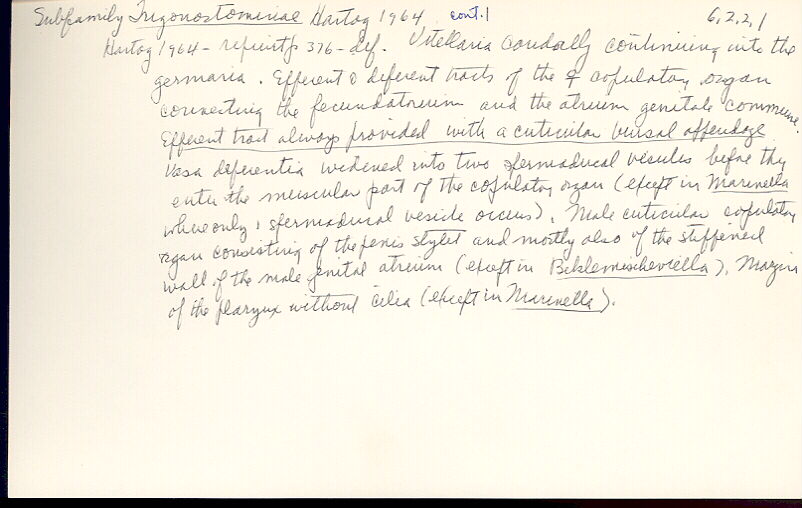 Subfamily Trigonostominae Hartog 1964 cont.1 6,2,2,1
Hartog 1964 - reprint p 376 - def. Vitellaria caudally continuing into the
germaria. Efferent & deferent tracts of the ♀ copulatory organ
connecting the fecundatorium and the atrium genitale commune.
Efferent tract always provided with a cuticular bursal appendage
Vasa deferentia widened into two spermaducal vesicles before they
enter the muscular part of the copulatory organ (except in Marinella
where only 1 spermaducal vesicle occurs). Male cuticular copulatory
organ consisting of the penis stylet and mostly also of the stiffened
wall of the male genital atrium (except in Beklemischeviella). Margin
of the pharynx without cilia (except in Marinella).